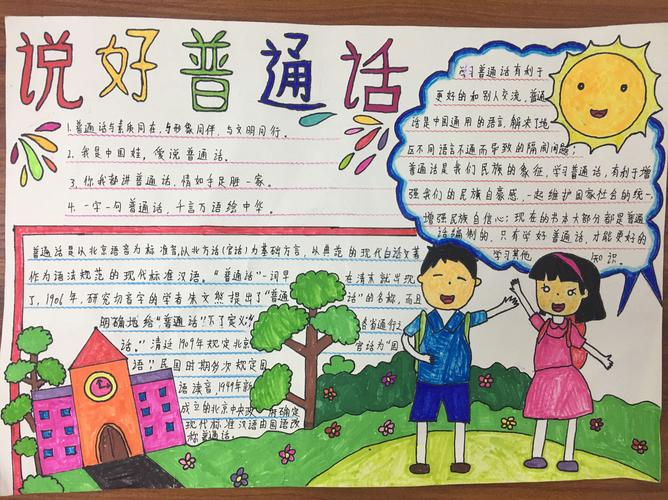 说好普通话
1.普通话与素质同在,与形象同伴,与文明同行。
2.我是中国娃,爱说普通话。
3.你我都讲普通话,情如手足胜一家。
4.一字一句普通话,千言万语绘中华。
学习普通话有利于
更好的和别人交流。普通
话是中国通用的语言,解决了地
区不同语言不通而导致的隔阂问题;
普通话是我们民族的象征,学习普通话,有利于增
强我们的民族自豪感,一起维护国家社会的统一,
增强民族自信心;现在的书本大部分都是普通
话编制的,只有学好普通话,才能更好的
学习其他 知识。
普通话是以北京语音为标准音,以北方话(官话)为基础方言,从典范的现代白话文著
作为语法规范的现代标准汉语。“普通话”一词早 在清末就出现
了,1906年,研究切音字的学者朱文熊提出了“普通 话”的名称,而且
明确地给“普通话”下了定义: 各省通行之
话。”清廷1909年规定北京 官话为“国
语”民国时期多次规定国
语读音1949年新
成立的北京中央政 府确定
现代标准汉语由国语改
称普通话。